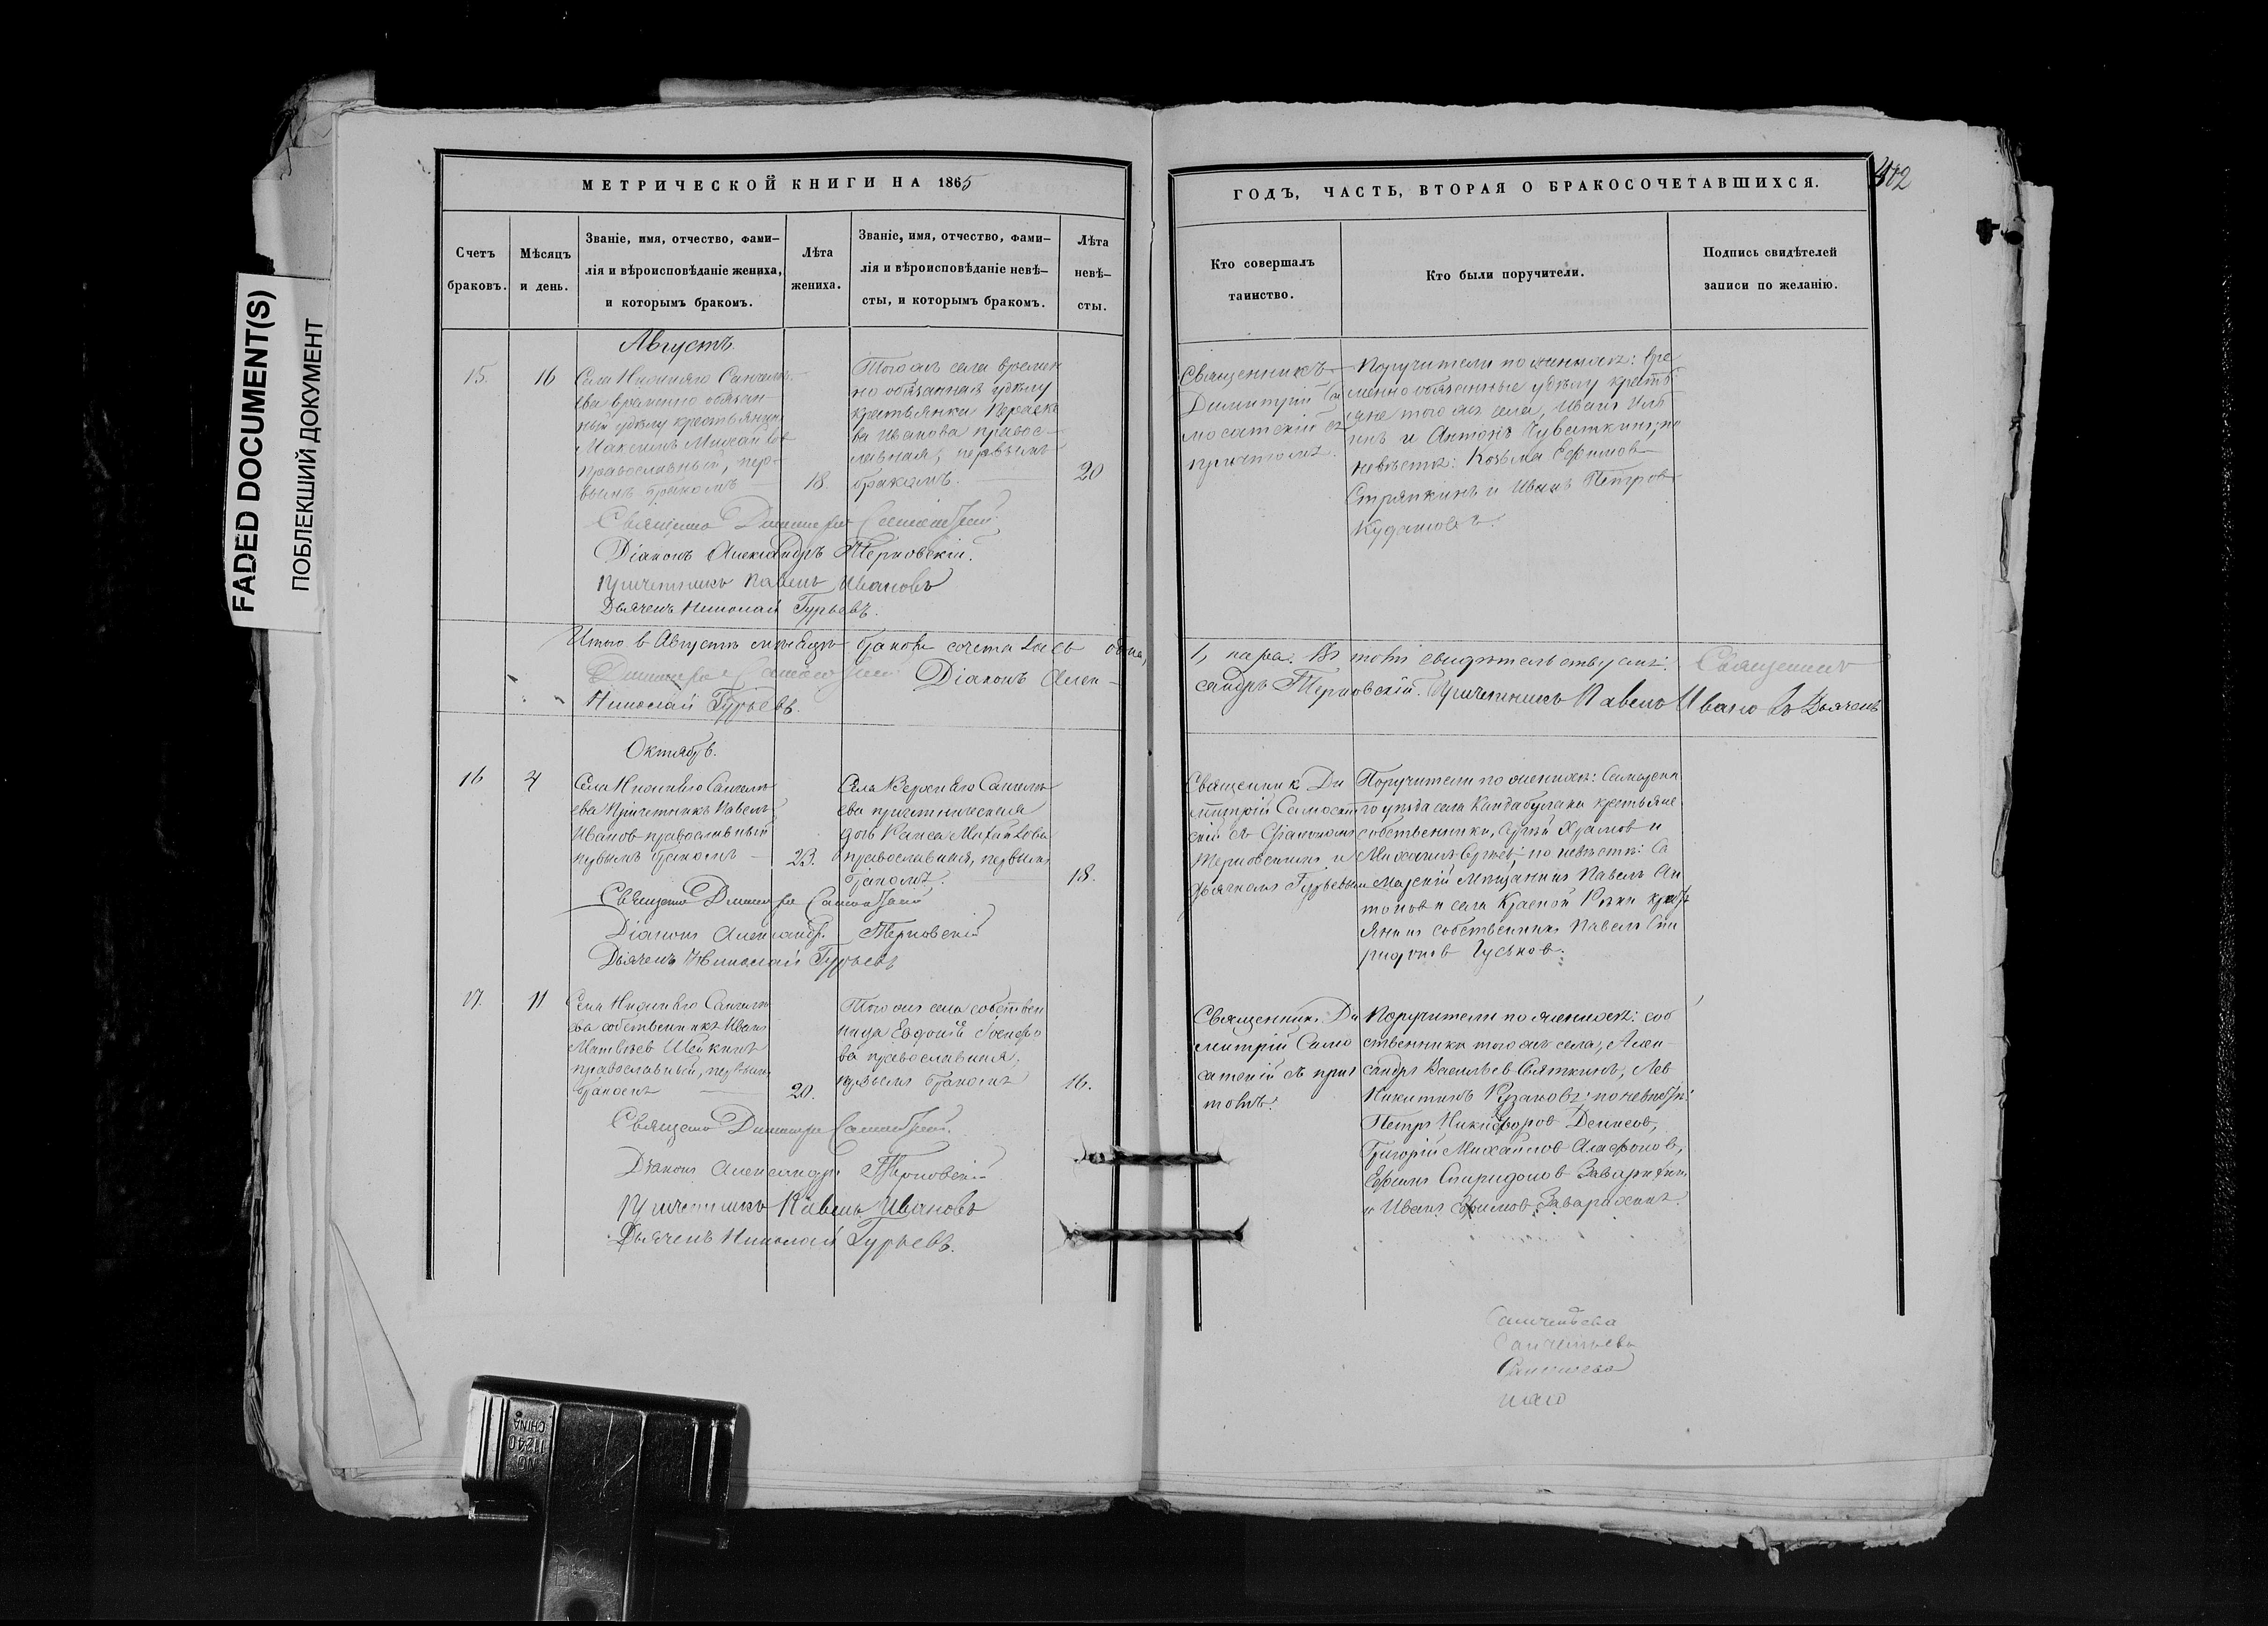 FADED DOCUMENT(S)
ПОБЛЕКШИЙ ДОКУМЕНТ
МЕТРИЧЕСКОЙ КНИГИ НА 1865
Счетъ браковъ.
Мѣсяцъ и день.
Званіе, имя, отчество, фами-
лія и вѣроисповѣданіе жениха,
и которымъ бракомъ.
Лѣта
жениха.
Званіе, имя, отчество, фами-
лія и вѣроисповѣданіе невѣ-
сты, и которымъ бракомъ.
Лѣта
невѣ-
сты.
Августъ.
15.
16
Села Нижняго Санчеле-
ева временно обязан-
ный удѣлу крестьянинъ
Максимъ Михайлов
православный, пер-
вымъ бракомъ
18.
Того жъ села времен
но обязанная удѣлу
крестьянка Параске
ва Иванова правос-
лавная, первымъ
бракомъ.
20
Діаконъ Александръ Терновскій.
Причетникъ Павелъ Ивановъ
Дьячекъ Николай Гурьевъ.
Итого в Августѣ мѣсяцѣ браковъ
Діаконъ Алек-
Николай Гурьевъ.
Октябрь.
16
4
Села Нижняго Санчеле
ева Причетникъ Павелъ
Иванов православный
первымъ бракомъ
23.
Села Верхняго Санчеле
ева причетническая
дочь Раиса Михайлова
православная, первымъ
бракомъ.
18.
Діаконъ Александръ Терновскій
Дьячекъ Николай Гурьевъ
17.
11
Села Нижняго Санчеле
ева собственникъ Иванъ
Матвѣев Шейкинъ
православный, первымъ
бракомъ
20.
Того жъ села собствен
ница Евдокія Іосифо
ва православная,
первымъ бракомъ
16.
Діаконъ Александръ Терновскій
Причетникъ Павелъ Ивановъ
Дьячекъ Николай Гурьевъ.
402
ГОДЪ, ЧАСТЬ, ВТОРАЯ О БРАКОСОЧЕТАВШИХСЯ.
Кто совершалъ
таинство.
Кто были поручители.
Подпись свидѣтелей
записи по желанію.
Священникъ
Димитрій Са
мосатскій съ
причтомъ.
Поручители по женихѣ: вре
менно обязанные удѣлу кресть
яне того жъ села, Иванъ
и Антонъ Чуваткинъ; по
невѣстѣ: Козьма Ефимов
Стряпкинъ и Иванъ Петров
Кудашовъ.
1, пара. Въ томъ свидѣтельствуемъ: Священникъ
сандръ Терновскій. Причетникъ Павелъ Ивановъ Дьячекъ
Священник Ди
митрій Самосат
скій съ Діакономъ
Терновскимъ и
дьячкомъ Гурьевымъ
Поручители по женихѣ:
го уѣзда села Кандабулака крестьяне
собственники, Храмов и
Михаилъ; по невѣстѣ: Са
марскій мѣщанинъ Павелъ Ан
тонов и села Красной Рѣки крестъ
янинъ собственникъ Павелъ Спи
ридонов Гуськов.
Священникъ Ди
митрій Само
сатскій съ прич
томъ.
Поручители по женихѣ: соб
ственники того жъ села, Алек
сандръ Васильев Святкинъ, Лев
Никитинъ; по невѣстѣ:
Петръ Никифоров Денисов,
Григорій Михайлов Агафонов,
Ефимъ Спиридонов Заварихин
и Иванъ Ефимов Заварихинъ.
Санчелѣева
Санчелѣева
NO
11240
CHINA